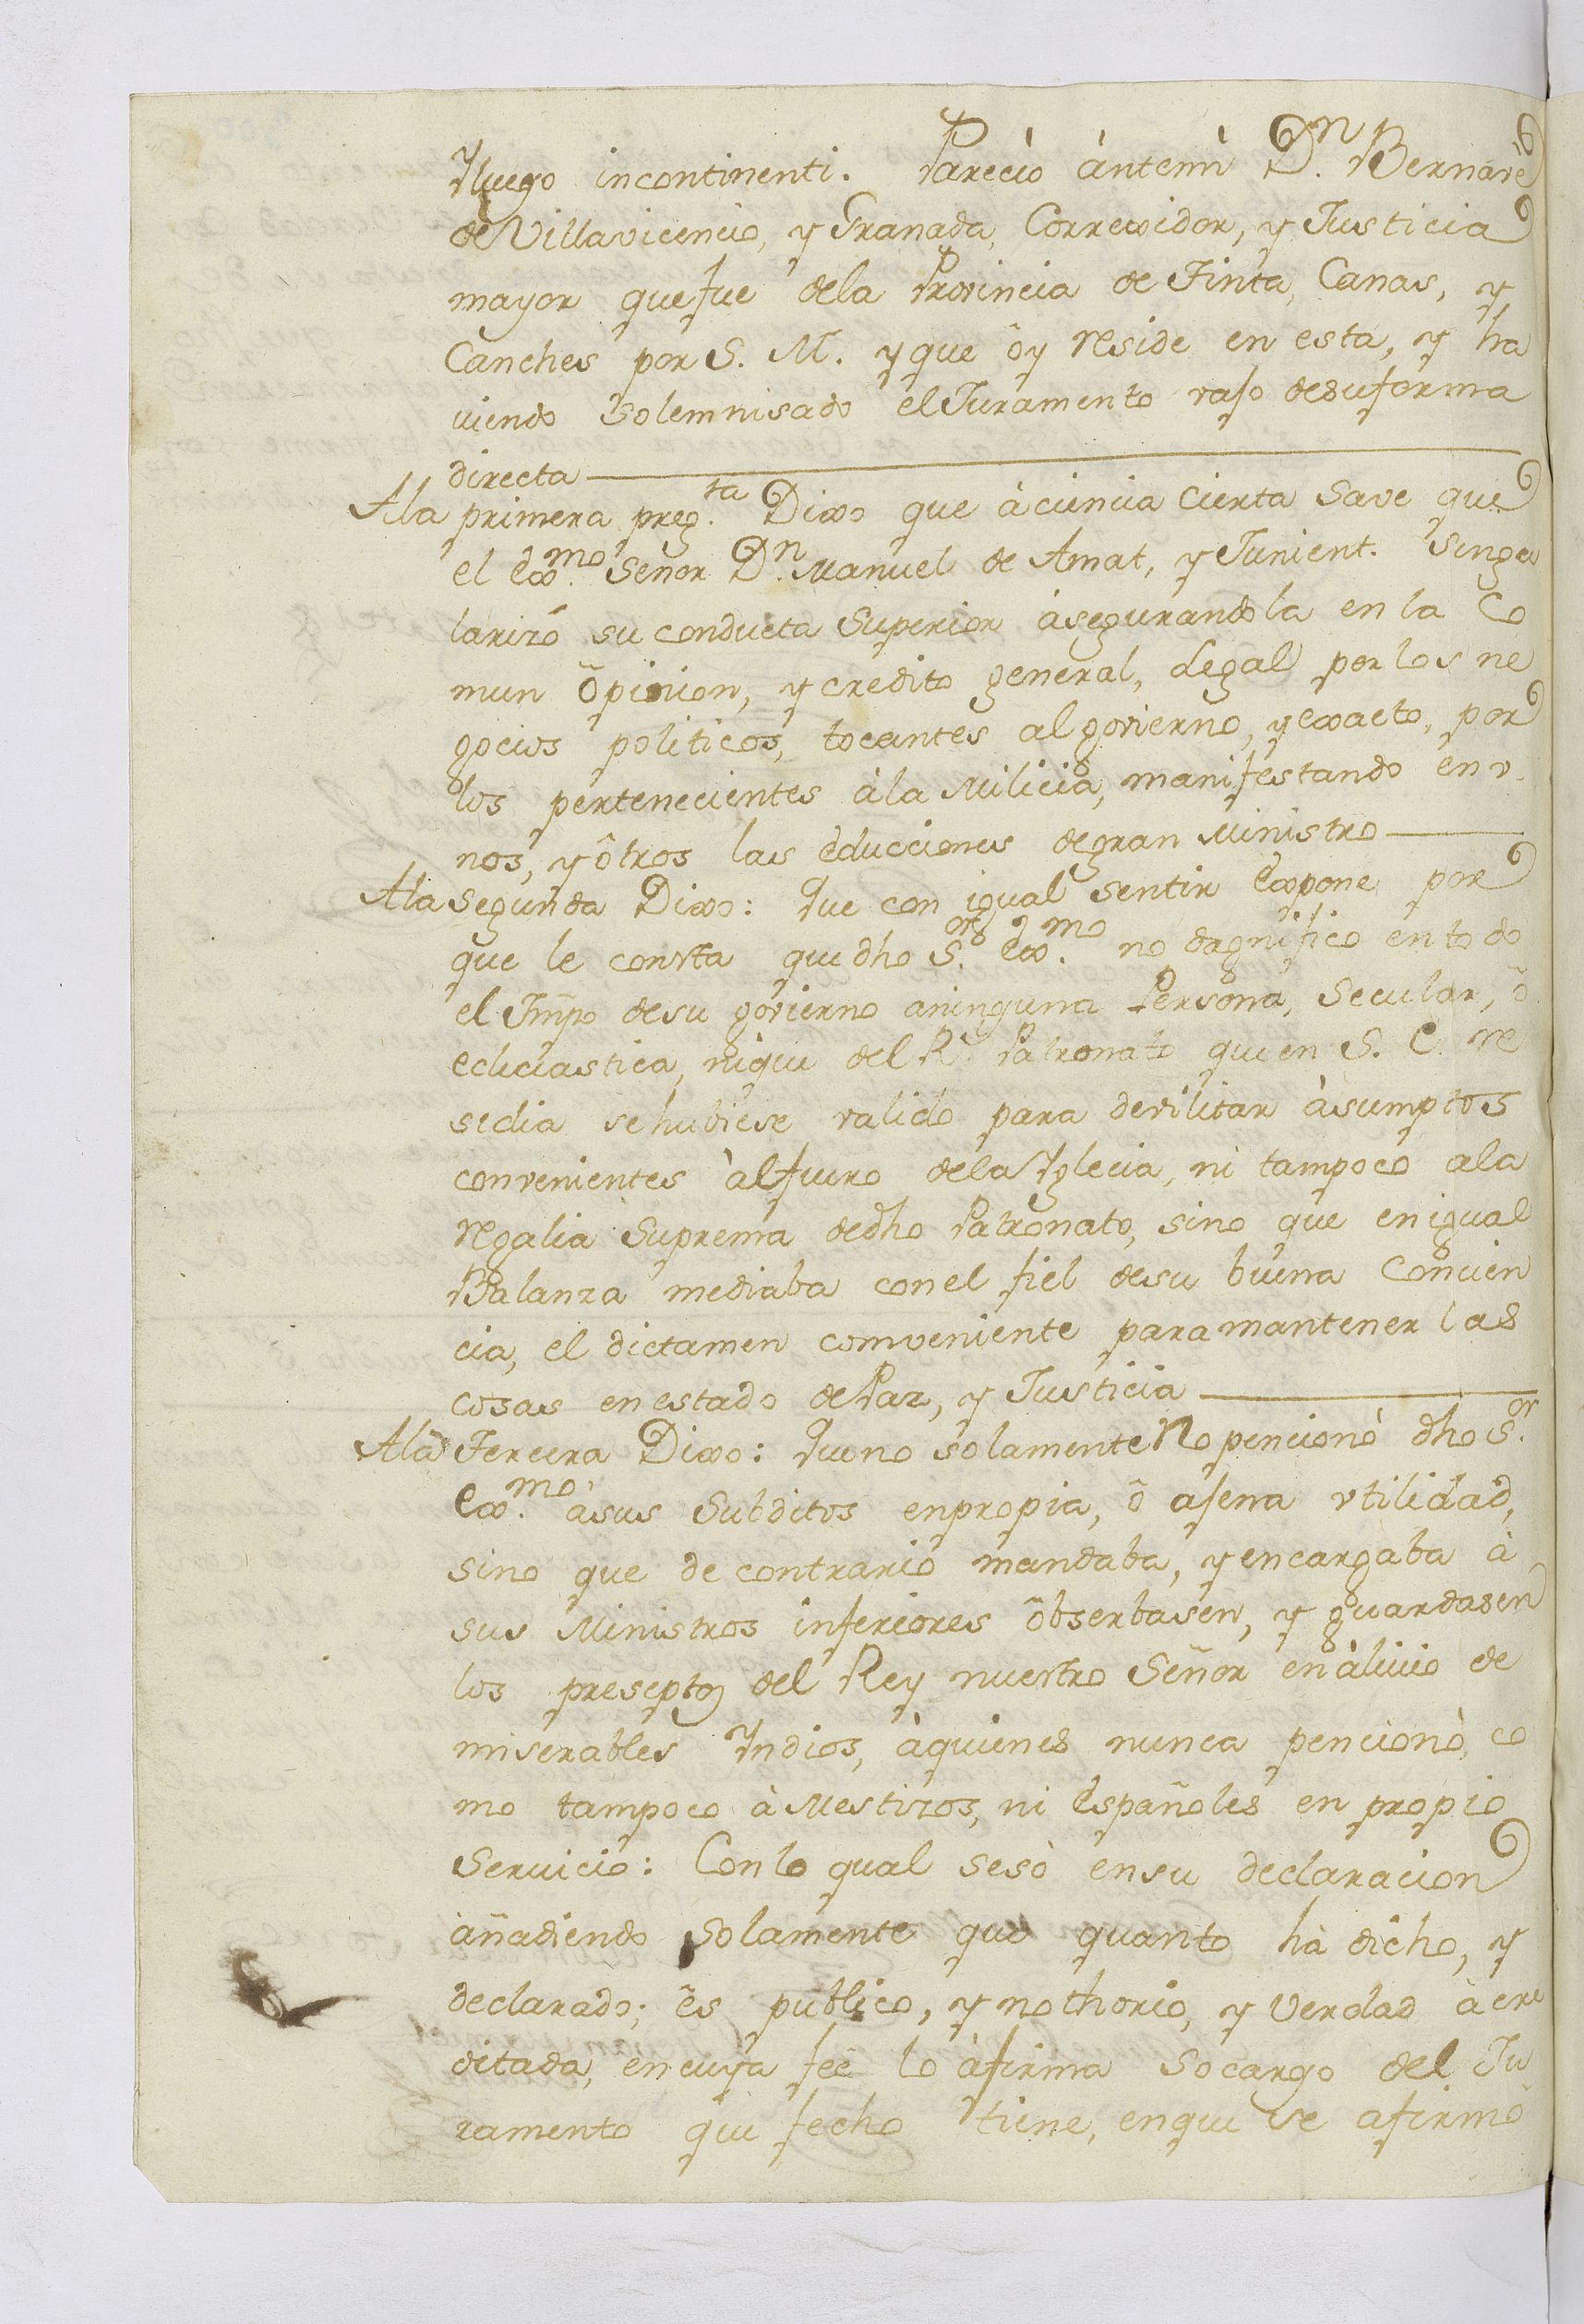 Yluego incontinenti. Pareciò àntemì Dⁿ. Bernavè
de Villavicencio, y Granada, Correxidor, y Justicia
mayor que fue dela Provincia de Tinta, Canas, y
Canches por S. M. y que ôy reside en esta, y ha
viendo solemnisado el Juramento vajo desuforma
directa
Ala primera preg.ta Dixo que àciencia cierta save que
el Exmo. Señor Dn. Manuel de Amat, y Junient. singu
larizó su conducta Superior àsegurandola en la Co
mun ôpinion, y credito general, Legal por los ne
gocios politicos, tocantes algovierno, y exacto, por
los pertenecientes àla Milicia, manifestando en v.
nos, y ôtros las educciones degran Ministro
Ala segunda Dixo: Que con igual sentir Expone por
que le consta que dho S.or Exmo. no dagnifico entodo
el Tmpo desu govierno aninguna Persona, Secular, ô
ecleciastica, nique del Rl. Patronato que en S. E. re
sedia sehubiese valido para devilitar àsumptos
convenientes àlfuero dela Yglecia, ni tampoco ala
regalia Suprema dedho Patronato, sino que enigual
Balanza mediaba conel fiel desu buena Concien
cia, el dictamen comveniente para mantener las
cosas en estado de Paz, y Justicia
Ala Tercera Dixo: Que no solamente No pencionò dho S.or
Exmo. àsus Subditos enpropia, ô ajena vtilidad,
sino que de contrario mandaba, y encargaba à
sus Ministros inferiores ôbserbasen, y guardasen
los preseptos del Rey nuestro Señor en àlivio de
miserables Yndios, àquienes nunca pencionò, co
mo tampoco à Mestizos, ni Españoles en propio
Servicio: Conlo qual sesò ensu declaracion
àñadiendo solamente que quanto hà dicho, y
declarado; ês publico, y nothorio, y Verdad àcre
ditada, encuya feê lo àfirma socargo del Ju
ramento que fecho tiene, enque se afirmò